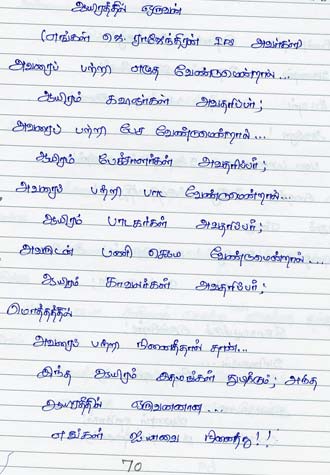 ஆயிரத்தில் ஒருவன்
(எங்கள் ஜெ. ராஜேந்திரன் IPS அவர்கள்)
அவரைப் பற்றி எழுத வேண்டுமென்றால்...
ஆயிரம் கவிஞர்கள் அவதரிப்பர்;
அவரைப் பற்றி பேச வேண்டுமென்றால்...
ஆயிரம் பேச்சாளர்கள் அவதரிப்பர்;
அவரைப் பற்றி பாட வேண்டுமென்றால்...
ஆயிரம் பாடகர்கள் அவதரிப்பர்;
அவருடன் பணி செய்ய வேண்டுமென்றால்...
ஆயிரம் காவலர்கள் அவதரிப்பர்;
மொத்தத்தில்
அவரைப் பற்றி நினைத்தால் தான்...
இந்த ஆயிரம் இதயங்கள் துடிக்கும்; அந்த
ஆயிரத்தில் ஒருவனான...
எங்கள் ஜனவை நினைத்து!!
70